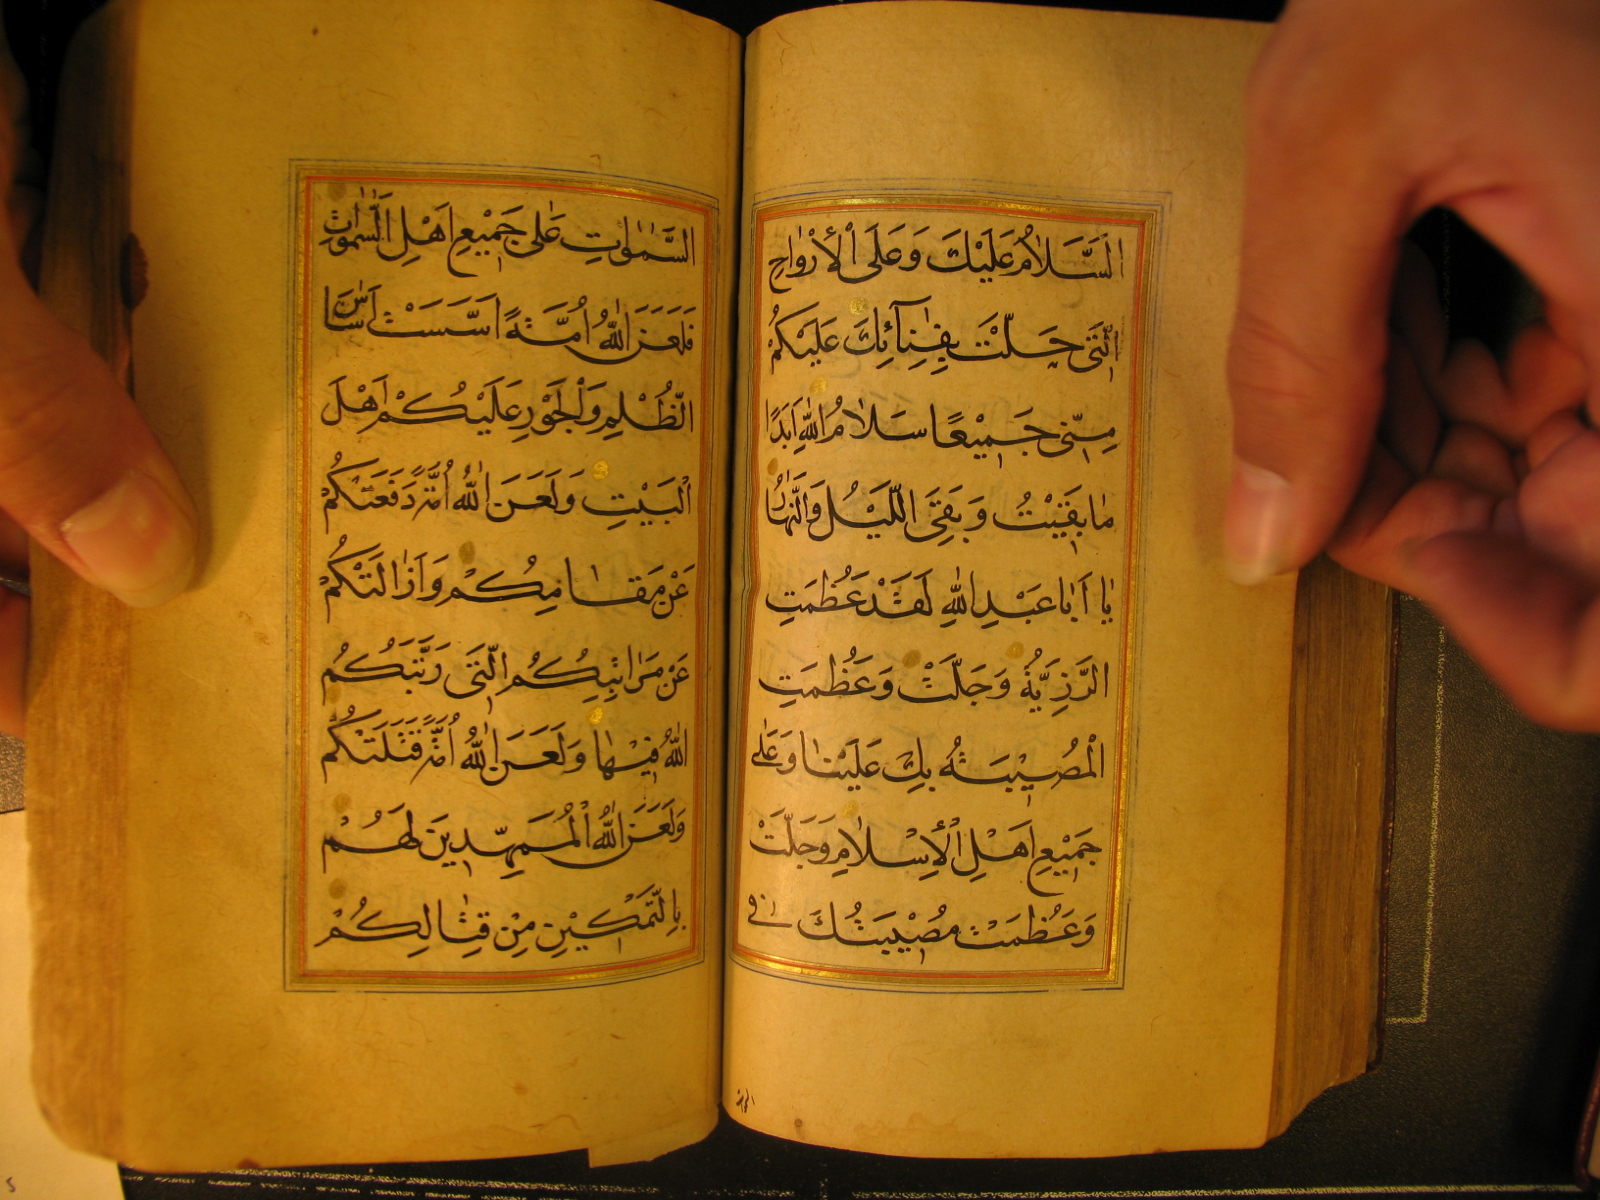 اَلسَّلَامُ عَلَيْكَ وَعَلَى الْأَرْوَاحِ
الَّتِي حَلَّتْ بِفِنَآئِكَ عَلَيْكُمْ
مِنِّي جَمِيْعًا سَلَامُ اللّٰهِ اَبَدًا
مَا بَقِيْتُ وَبَقِيَ اللَّيْلُ وَالنَّهَارُ
يَا اَبَا عَبْدِ اللّٰهِ لَقَدْ عَظُمَتِ
الرَّزِيَّةُ وَجَلَّتْ وَعَظُمَتِ
الْمُصِيْبَةُ بِكَ عَلَيْنَا وَعَلٰى
جَمِيْعِ اَهْلِ الْاِسْلَامِ وَجَلَّتْ
وَعَظُمَتْ مُصِيْبَتُكَ فِي
السَّمٰوٰاتِ عَلٰى جَمِيْعِ اَهْلِ السَّمٰوٰاتِ
فَلَعَنَ اللّٰهُ اُمَّةً اَسَّسَتْ اَسَاسَ
الظُّلْمِ وَالْجَوْرِ عَلَيْكُمْ اَهْلَ
الْبَيْتِ وَلَعَنَ اللّٰهُ اُمَّةً دَفَعَتْكُمْ
عَنْ مَقَامِكُمْ وَاَزَالَتْكُمْ
عَنْ مَرَاتِبِكُمُ الَّتِي رَتَّبَكُمُ
اللّٰهُ فِيْهَا وَلَعَنَ اللّٰهُ اُمَّةً قَتَلَتْكُمْ
وَلَعَنَ اللّٰهُ الْمُمَهِّدِيْنَ لَهُمْ
بِالتَّمْكِيْنِ مِنْ قِتَالِكُمْ